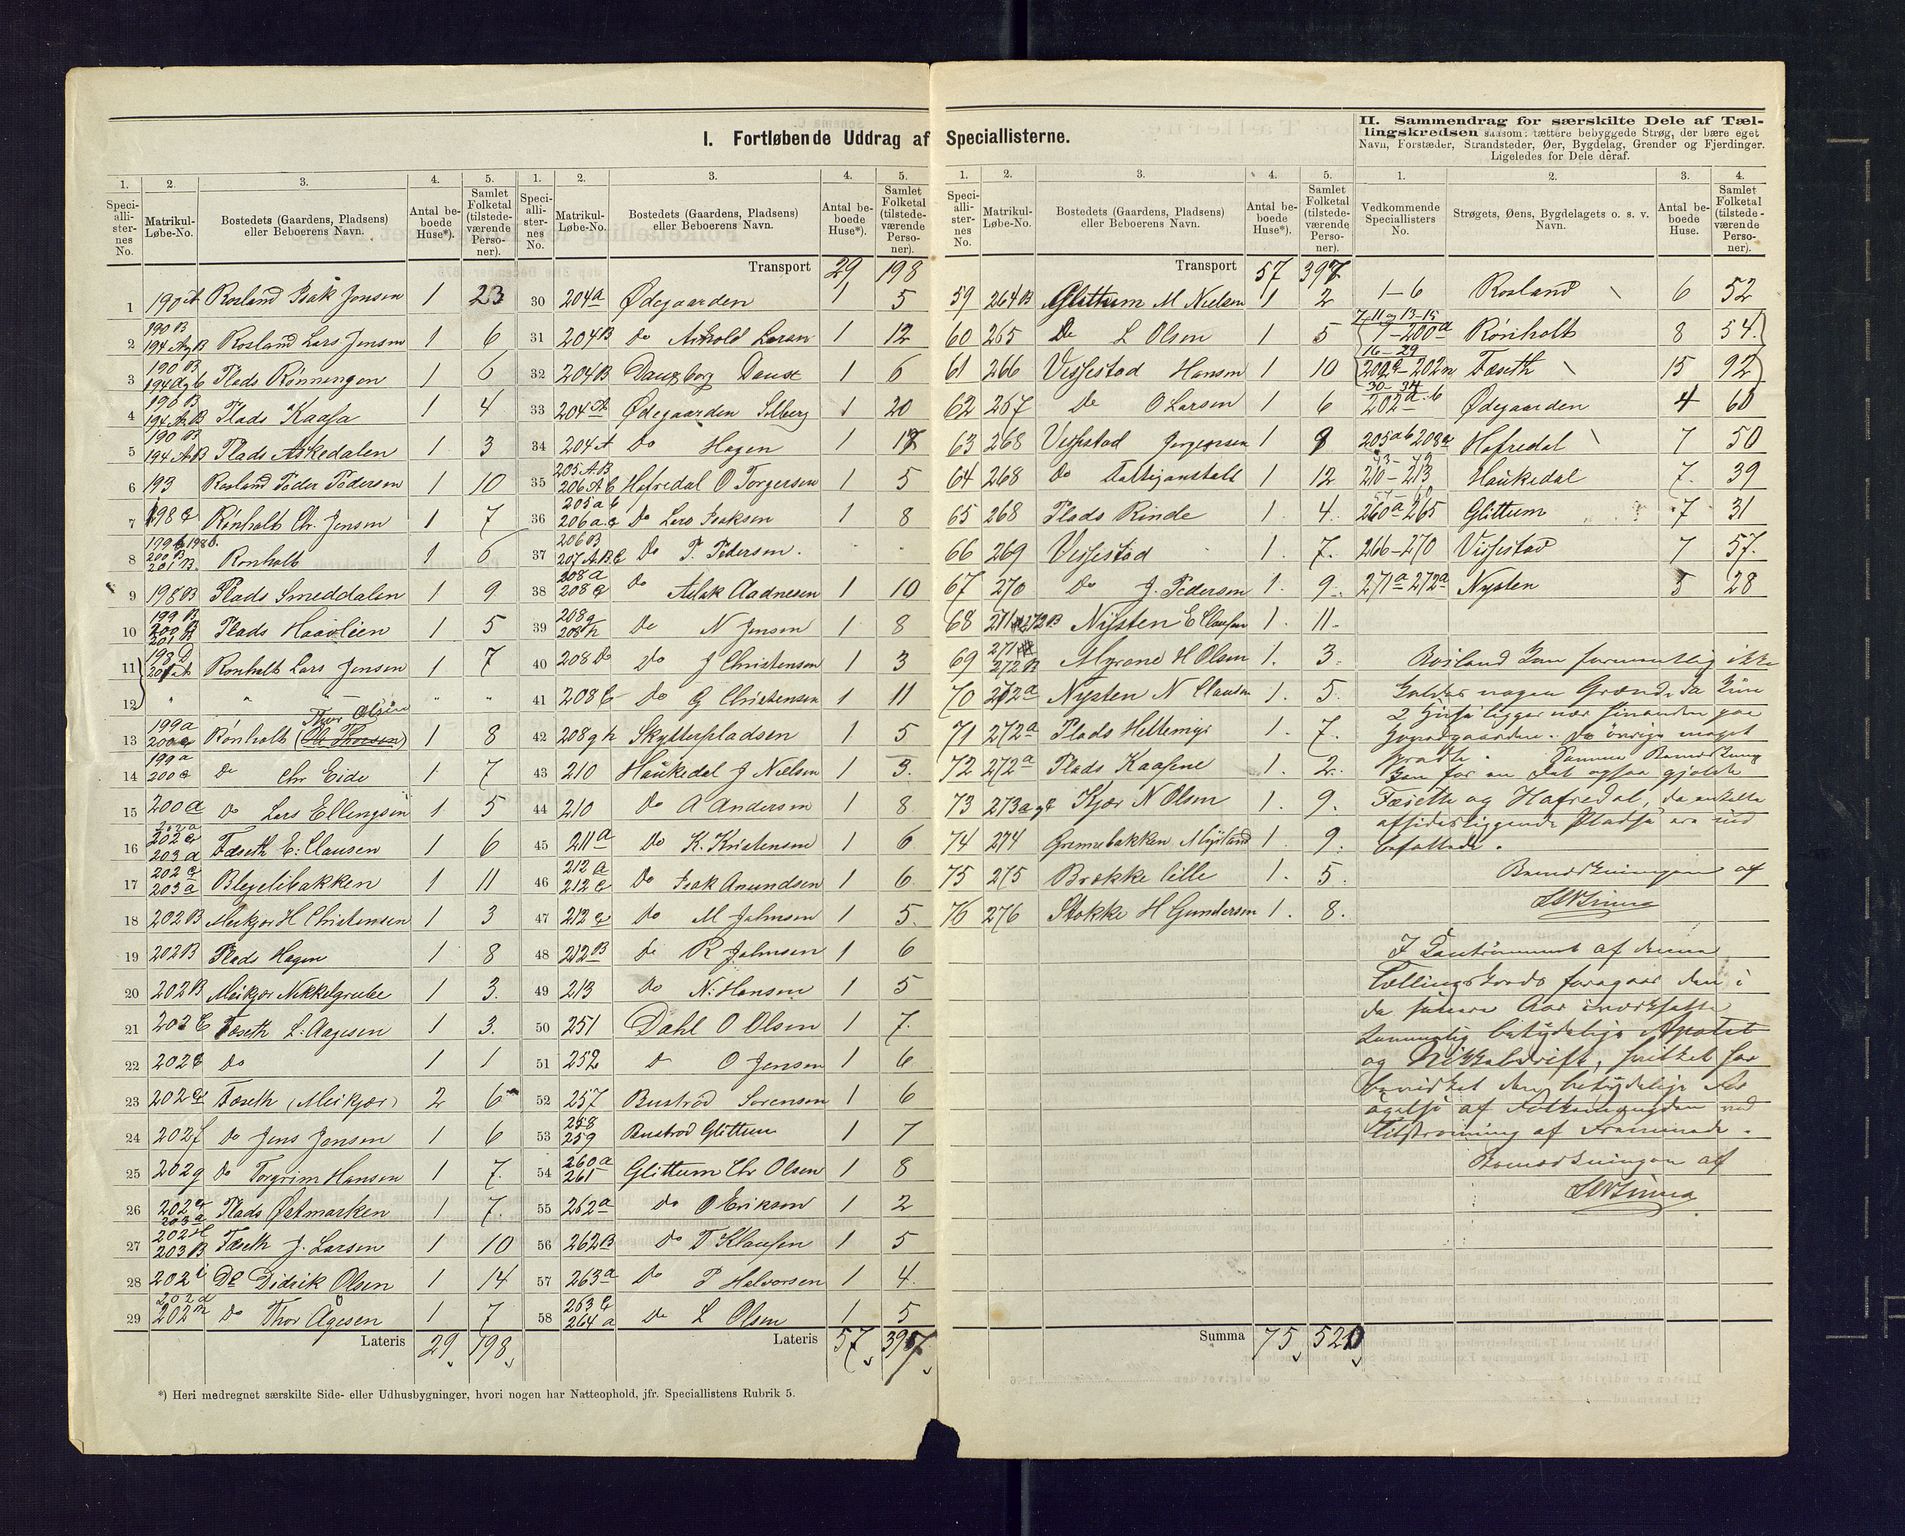 I. Fortløbende Uddrag af Speciallisterne.
II. Sammendrag for særskilte Dele af Tæl-
lingskredsen saasom: tættere bebyggede Strøg, der bære eget
Navn, Forstæder, Strandsteder, Øer, Bygdelag, Grender og Fjerdinger.
Ligeledes for Dele deraf.
1. 2. 3. 4. 5.
Speci-allister-nes No. Matrikul-Løbe-No. Bostedets (Gaardens, Pladsens) eller Beboerens Navn. Antal be-boede Huse*). Samlet Folketal (tilstede-værende Perso-ner).
1 190 A Rosland Isak Jensen 1 23
2 190 B 194 A,B Rosland Lars Jensen 1 6
3 190 B Plads Rønningen 1 6
4 190 B 194 A,B Plads Kaasa 1 4
5 190 B 194 A,B Plads Askedalen 1 3
6 193 Rosland Peder Pedersen 1 10
7 198 Rønholt Chr. Jensen 1 7
8 Rønholt 1 6
9 198 B Plads Smeddalen 1 9
10 199 B Plads 1 5
11 Rønholt Lars Jensen 1 7
12 " " " " "
13 199 a Rønholt Thor Olsen 1 8
14 199 a Do Chr Eide 1 7
15 200 a Do Lars Ellengsen 1 5
16 Fæseth E. Clausen 1 6
17 Blegelibakken 1 11
18 202 B Meikjær H Christensen 1 3
19 202 B Plads Hagen 1 8
20 202 B Meikjær Nikkelgrube 1 3.
21 202 C Fæseth L. Aagesen 1 3.
22 202 Do 1 1
23 202 Fæseth (Meikjær) 2 6
24 202 f Do Jens Jensen 1 6
25 202 g Do Torgrim Hansen 1 7.
26 Plads Østmarken 1 7.
27 202 H 203 B Fæseth J. Larsen 1 10
28 202 i Do Didrik Olsen 1 14
29 202 m Do Thor Agesen 1 7
Lateris 29 198
1. 2. 3. 4. 5.
Speci-allister-nes No. Matrikul-Løbe-No. Bostedets (Gaardens, Pladsens) eller Beboerens Navn. Antal be-boede Huse*). Samlet Folketal (tilstede-værende Perso-ner).
Transport 29 198
30 204 a Ødegaarden 1 5
31 204 B Do Larsen 1 12
32 204 B 1 6
33 204 A Ødegaarden Solberg 1 20
34 204 A Do Hagen 1 17
35 205 A.B Hafredal O Torgersen 1 5
36 Do Lars Isaksen 1 8
37 206 B Do P. Pedersen. . .
38 208 a Do Aslak Aadnesen 1 10
39 208 g 208 h Do N Jensen 1 8
40 208 Do J Christensen 1 3
41 208 Do G Christensen 1 11
42 208 g h Skytterpladsen 1 5
43 210 Haukedal J Nielsen 1 3.
44 210 Do A Andersen 1 8
45 211 a Do K. Kristensen 1 6
46 212 a Do Isak Amundsen 1 6
47 212 Do M Johnsen 1 5
48 212 B Do R Johnsen 1 6
49 213 Do N. Hansen 1 5
50 251 Dahl O Olsen 1 7.
51 252 Do O Jensen 1 6
52 257 Bustrød Sørensen 1 6
53 258 259 Bustrød Glittum 1 7
54 260 a 261 Glittum Chr Olsen 1 8
55 262 a Do O Eriksen 1 2
56 262 B Do T Klausen 1 5
57 263 a Do P Halvorsen 1 4
58 264 a Do L Olsen 1 5
Lateris 57 397
1. 2. 3. 4. 5.
Speci-allister-nes No. Matrikul-Løbe-No. Bostedets (Gaardens, Pladsens) eller Beboerens Navn. Antal be-boede Huse*). Samlet Folketal (tilstede-værende Perso-ner).
Transport 57 397
59 264 B Glittum M Nielsen 1 2
60 265 Do L Olsen 1 5
61 266 Vissestad Hansen 1 10
62 267 Do O Larsen 1 6
63 268 Vissestad Jørgensen 1 8
64 268 Do Fattiganstalt 1 12
65 268 Plads Rinde 1 4.
66 269 Vissestad 1 7.
67 270 Do J. Pedersen 1 9.
68 Nysten E Clausen 1 11.
69 272 B Myrene H Olsen 1. 3.
70 272 a Nysten N Clausen 1. 5.
71 272 a Plads Heltemyr 1. 7.
72 272 a Plads Kaasene 1. 2.
73 273 Kjær N Olsen 1. 9.
74 274 Grønnebakken 1. 9.
75 275 Brække lille 1. 5.
76 276 Stokke H Gundersen 1. 8.
Summa 75 520
1. 2. 3. 4.
Vedkommende Speciallisters No. Strøgets, Øens, Bygdelagets o. s. v. Navn. Antal be-boede Huse. Samlet Folketal (tilstede-værende Perso-ner).
1 - 6 Rosland 6 52
7-11 og 13-15 Rønholt 8 54
16 - 29 Fæseth 15 92
30 - 34 Ødegaarden 4 60
Hafredal 7 50
210 - 213 Haukedal 7. 39
260 a 265 Glittum 7 31
266 - 270 Vissestad 7 57.
271 a 272 a Nysten 5 28
Rosland kan formentlig ikke
kaldes nogen Grænd, da kun
2 Huse ligger nær hinanden paa
Hovedgaarden. De øvrige meget
spredte. Samme Bemærkning
kan for en Del ogsaa gjælde
Fæseth og Hafredal, da enkelte
afsidesliggende Pladse ere ind
befattede.
Bemærkningen af
I Centrummet af denne
Tællingskreds foregaar den i
de senere Aar iværksatte
temmelig betydelige Apatit
og Nikkeldrift, hvilket har
bevirket den betydelige For
øgelse af Folkemængden ved
Tilstrømning af Fremmede.
Bemærkningen af
*) Heri medregnet særskilte Side- eller Udhusbygninger, hvori nogen har Natteophold, jfr. Speciallistens Rubrik 5.